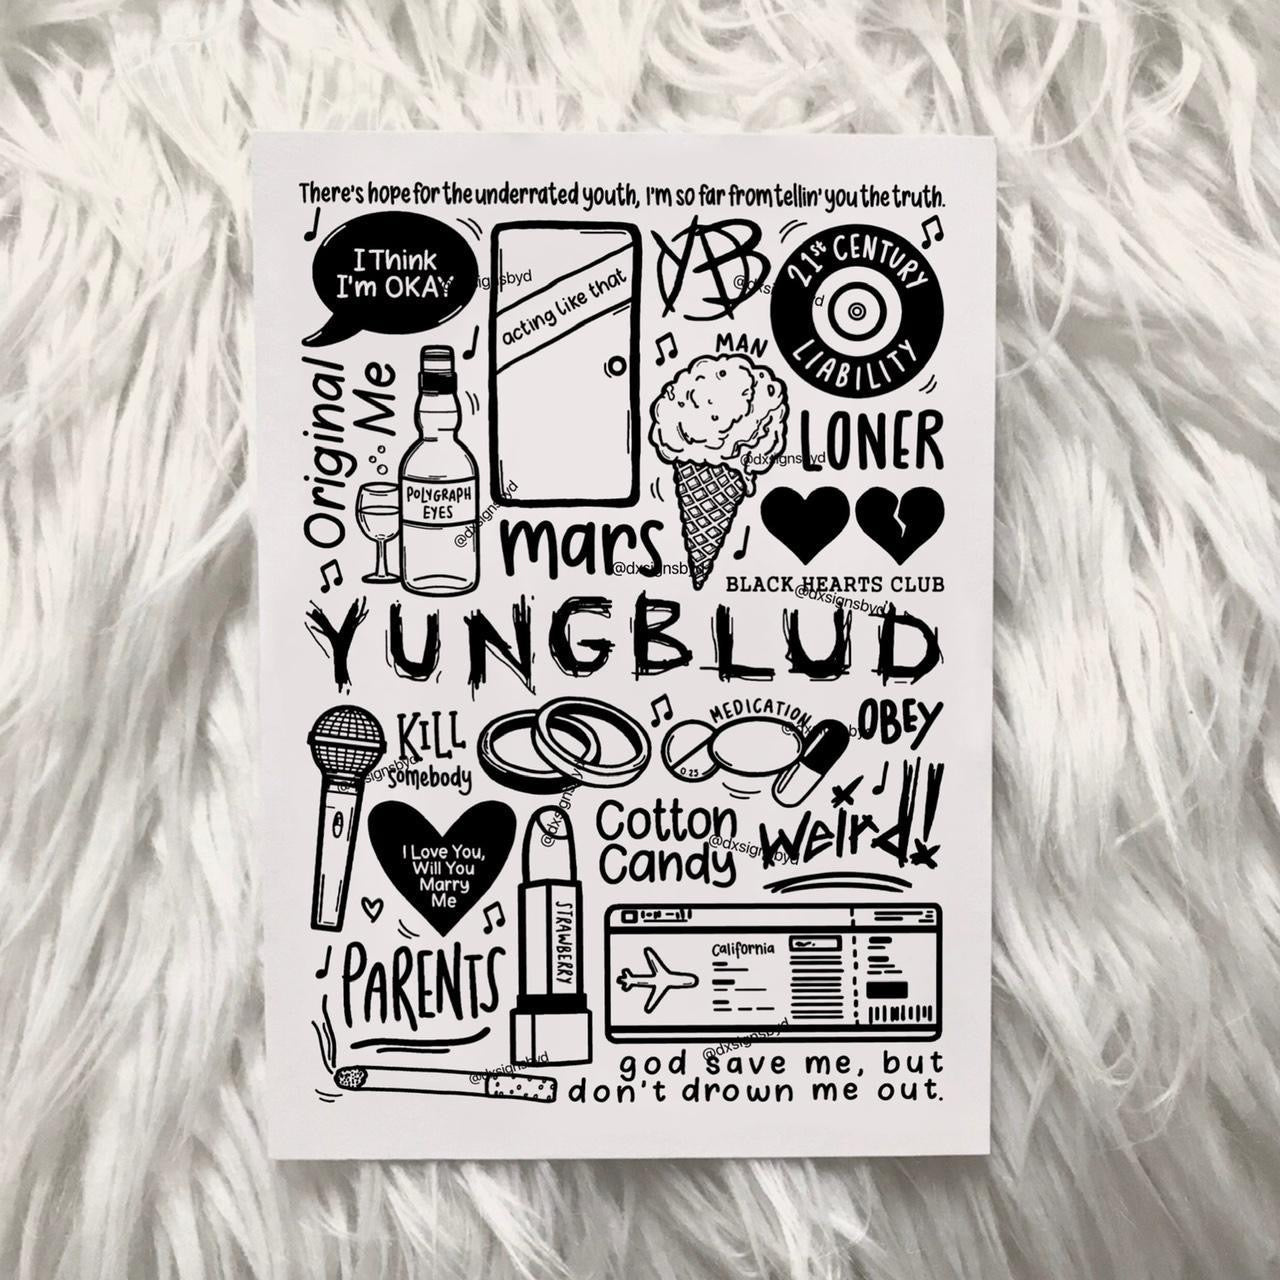 There's hope for the underrated youth, I'm so far from tellin' you the truth.
I Think
I'm OKAY
acting like that
YB
21st CENTURY
LIABILITY
MAN
Original
Me
LONER
POLYGRAPH
EYES
mars
BLACK HEARTS CLUB
YUNGBLUD
KILL
Somebody
MEDICATION
0.25
OBEY
Cotton
Candy
Weird!
I Love You,
Will You
Marry
Me
STRAWBERRY
PARENTS
California
god save me, but
don't drown me out.
@dxsignsbyd
@dxsignsbyd
@dxsignsbyd
@dxsignsbyd
@dxsignsbyd
@dxsignsbyd
@dxsignsbyd
@dxsignsbyd
@dxsignsbyd